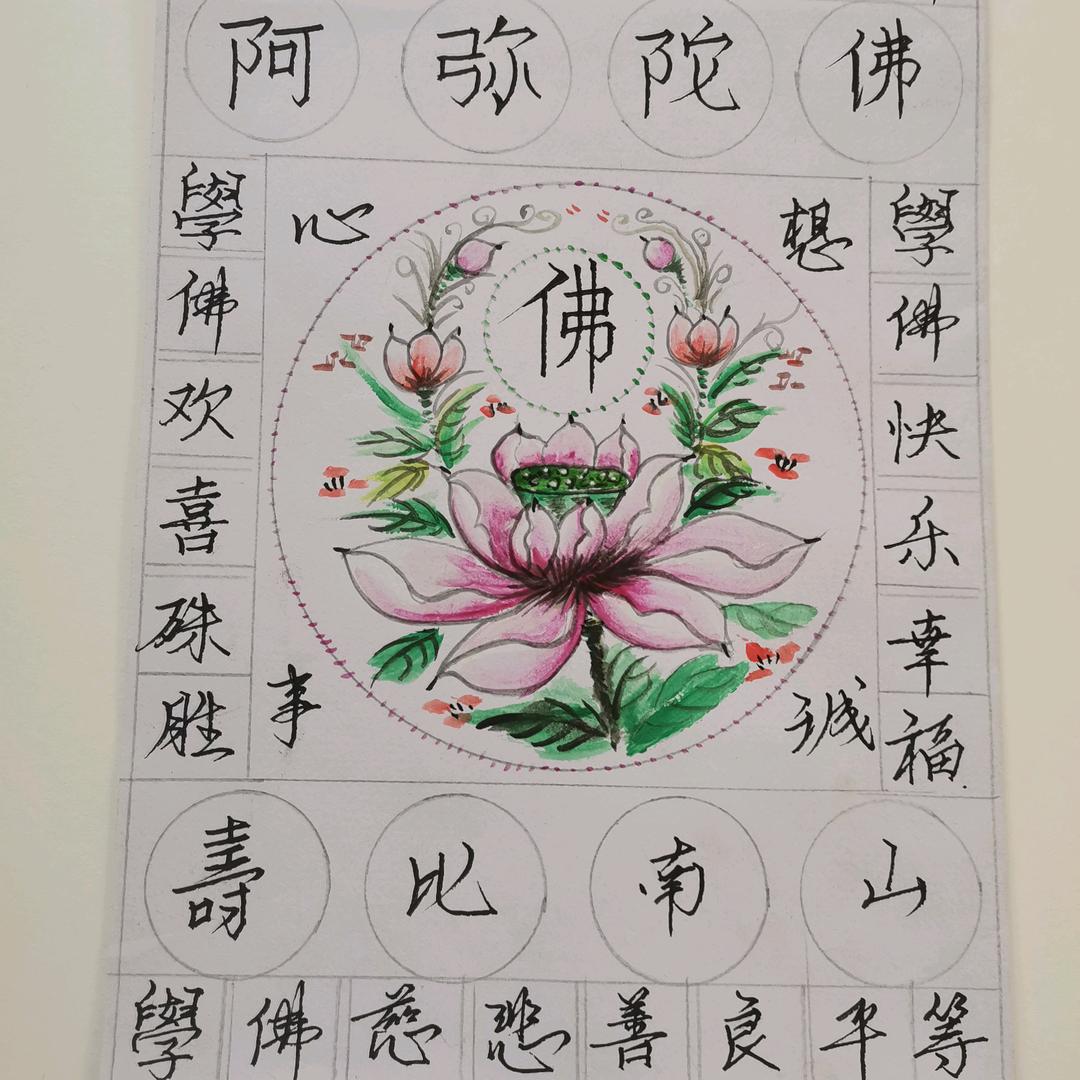 阿弥陀佛
學佛欢喜殊胜
心想事诚
佛
學佛快乐幸福
壽比南山
學佛慈悲善良平等